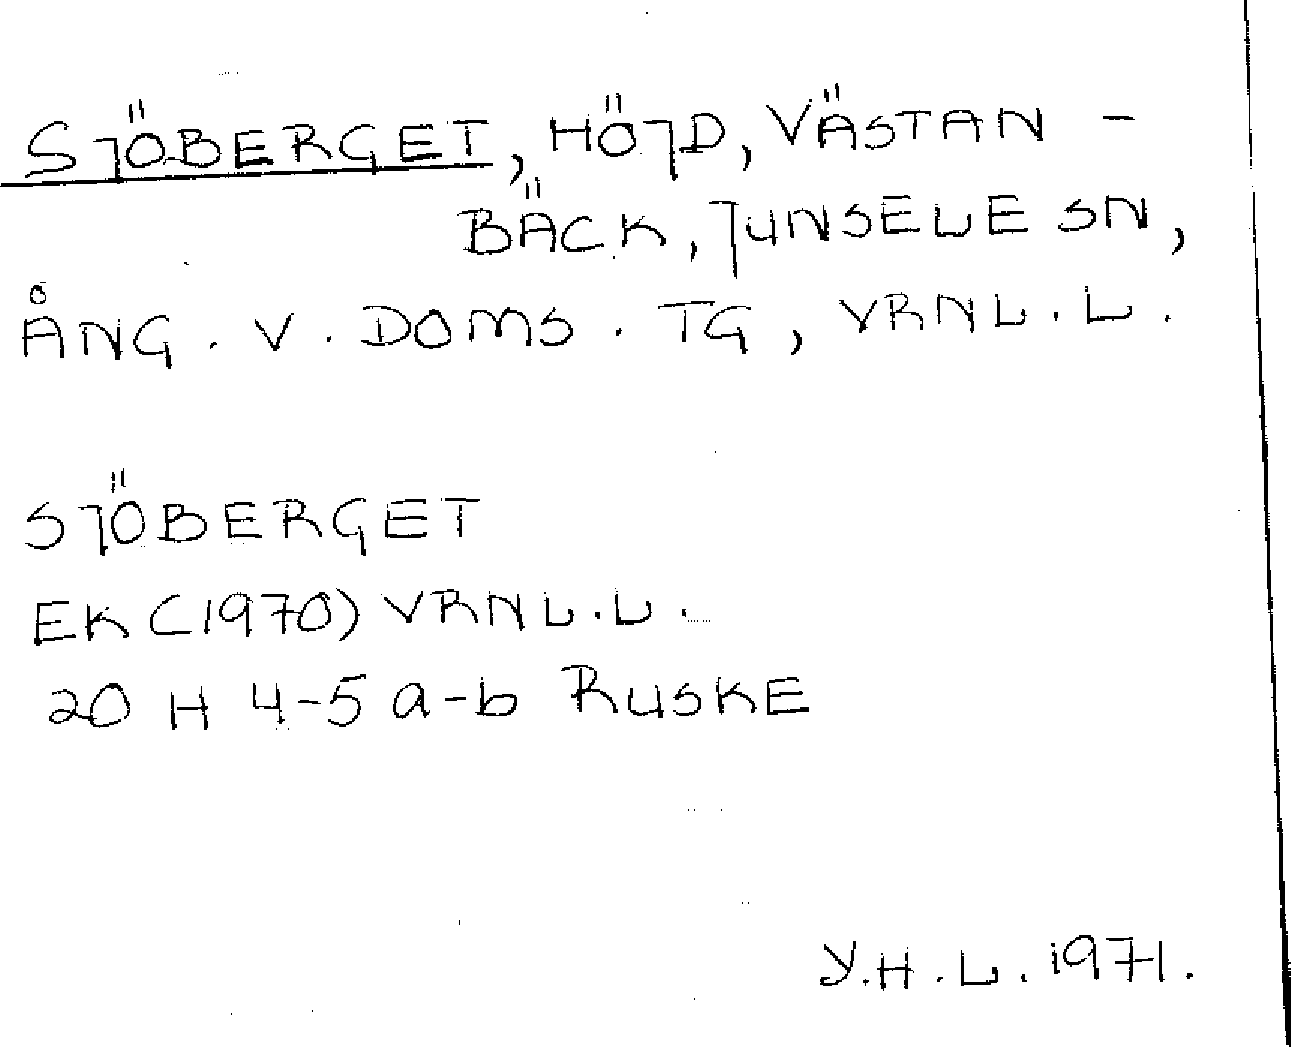 SJÖBERGET, HÖJD, VÄSTAN-
BÄCK, JUNSELE SN,
ÅNG. V. DOMS. TG, VRNL.L.
SJÖBERGET
EK (1970) VRNL.L.
20 H 4-5 a-b RUSKE
Y.H.L. 1971.